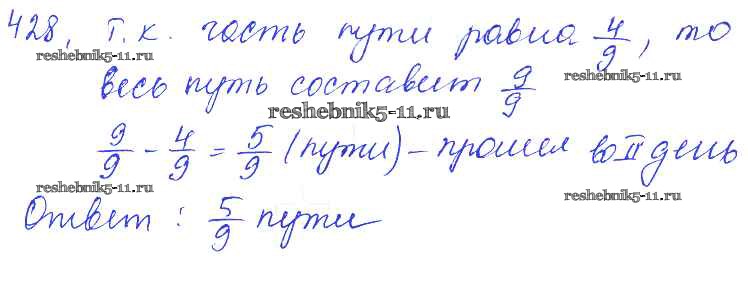 428. Т. к. часть пути равна 4/9, то
reshebnik5-11.ru
reshebnik5-11.ru
весь путь составит 9/9
reshebnik5-11.ru
9/9 - 4/9 = 5/9 (пути) - прошел во II день
reshebnik5-11.ru
reshebnik5-11.ru
Ответ: 5/9 пути